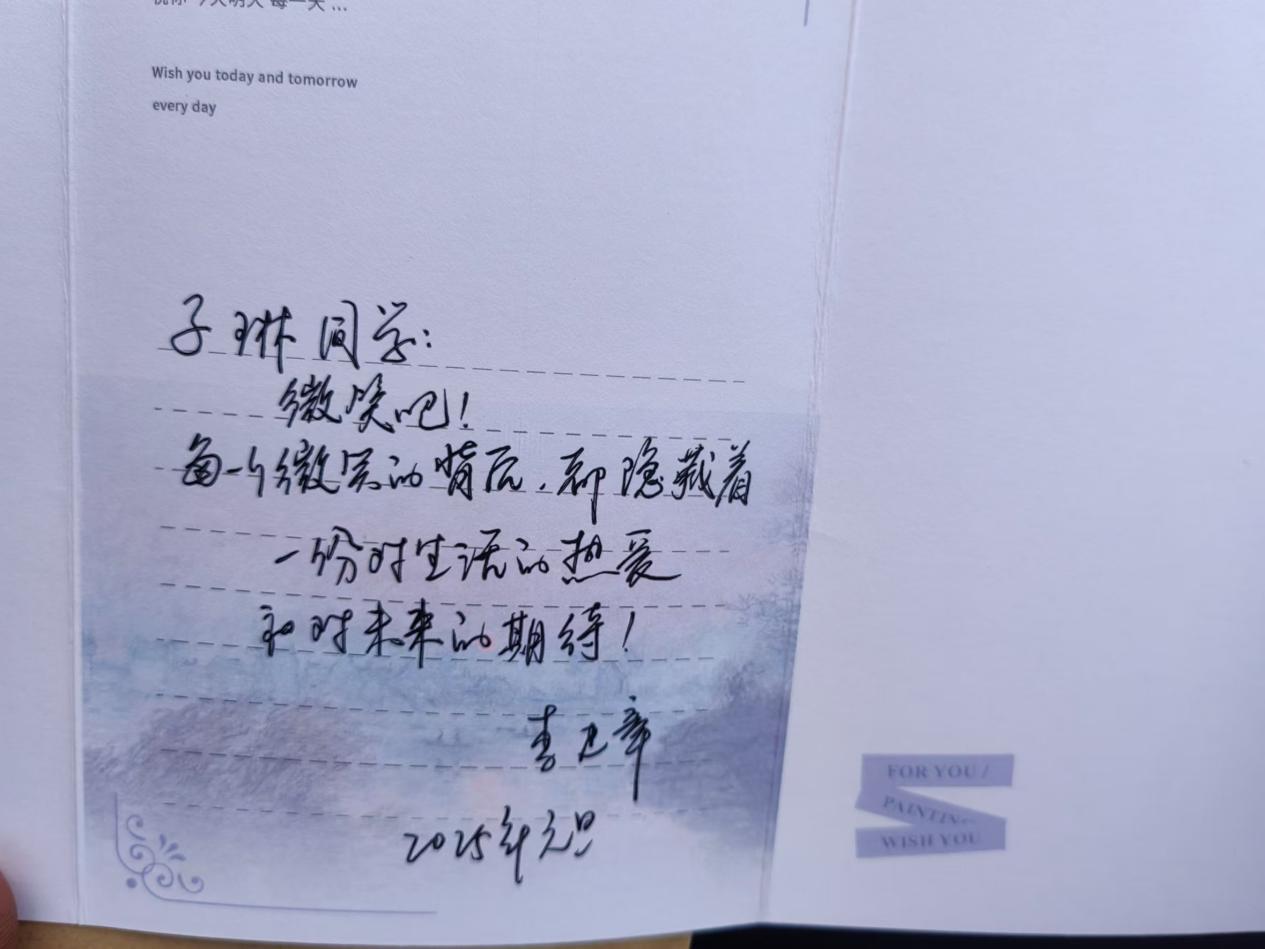 祝你 今天明天 每一天 ...
Wish you today and tomorrow
every day
子琳同学:
微笑吧!
每一个微笑的背后,都隐藏着
一份对生活的热爱
和对未来的期待!
李卫章
2025年元旦
FOR YOU /
PAINTING
WISH YOU